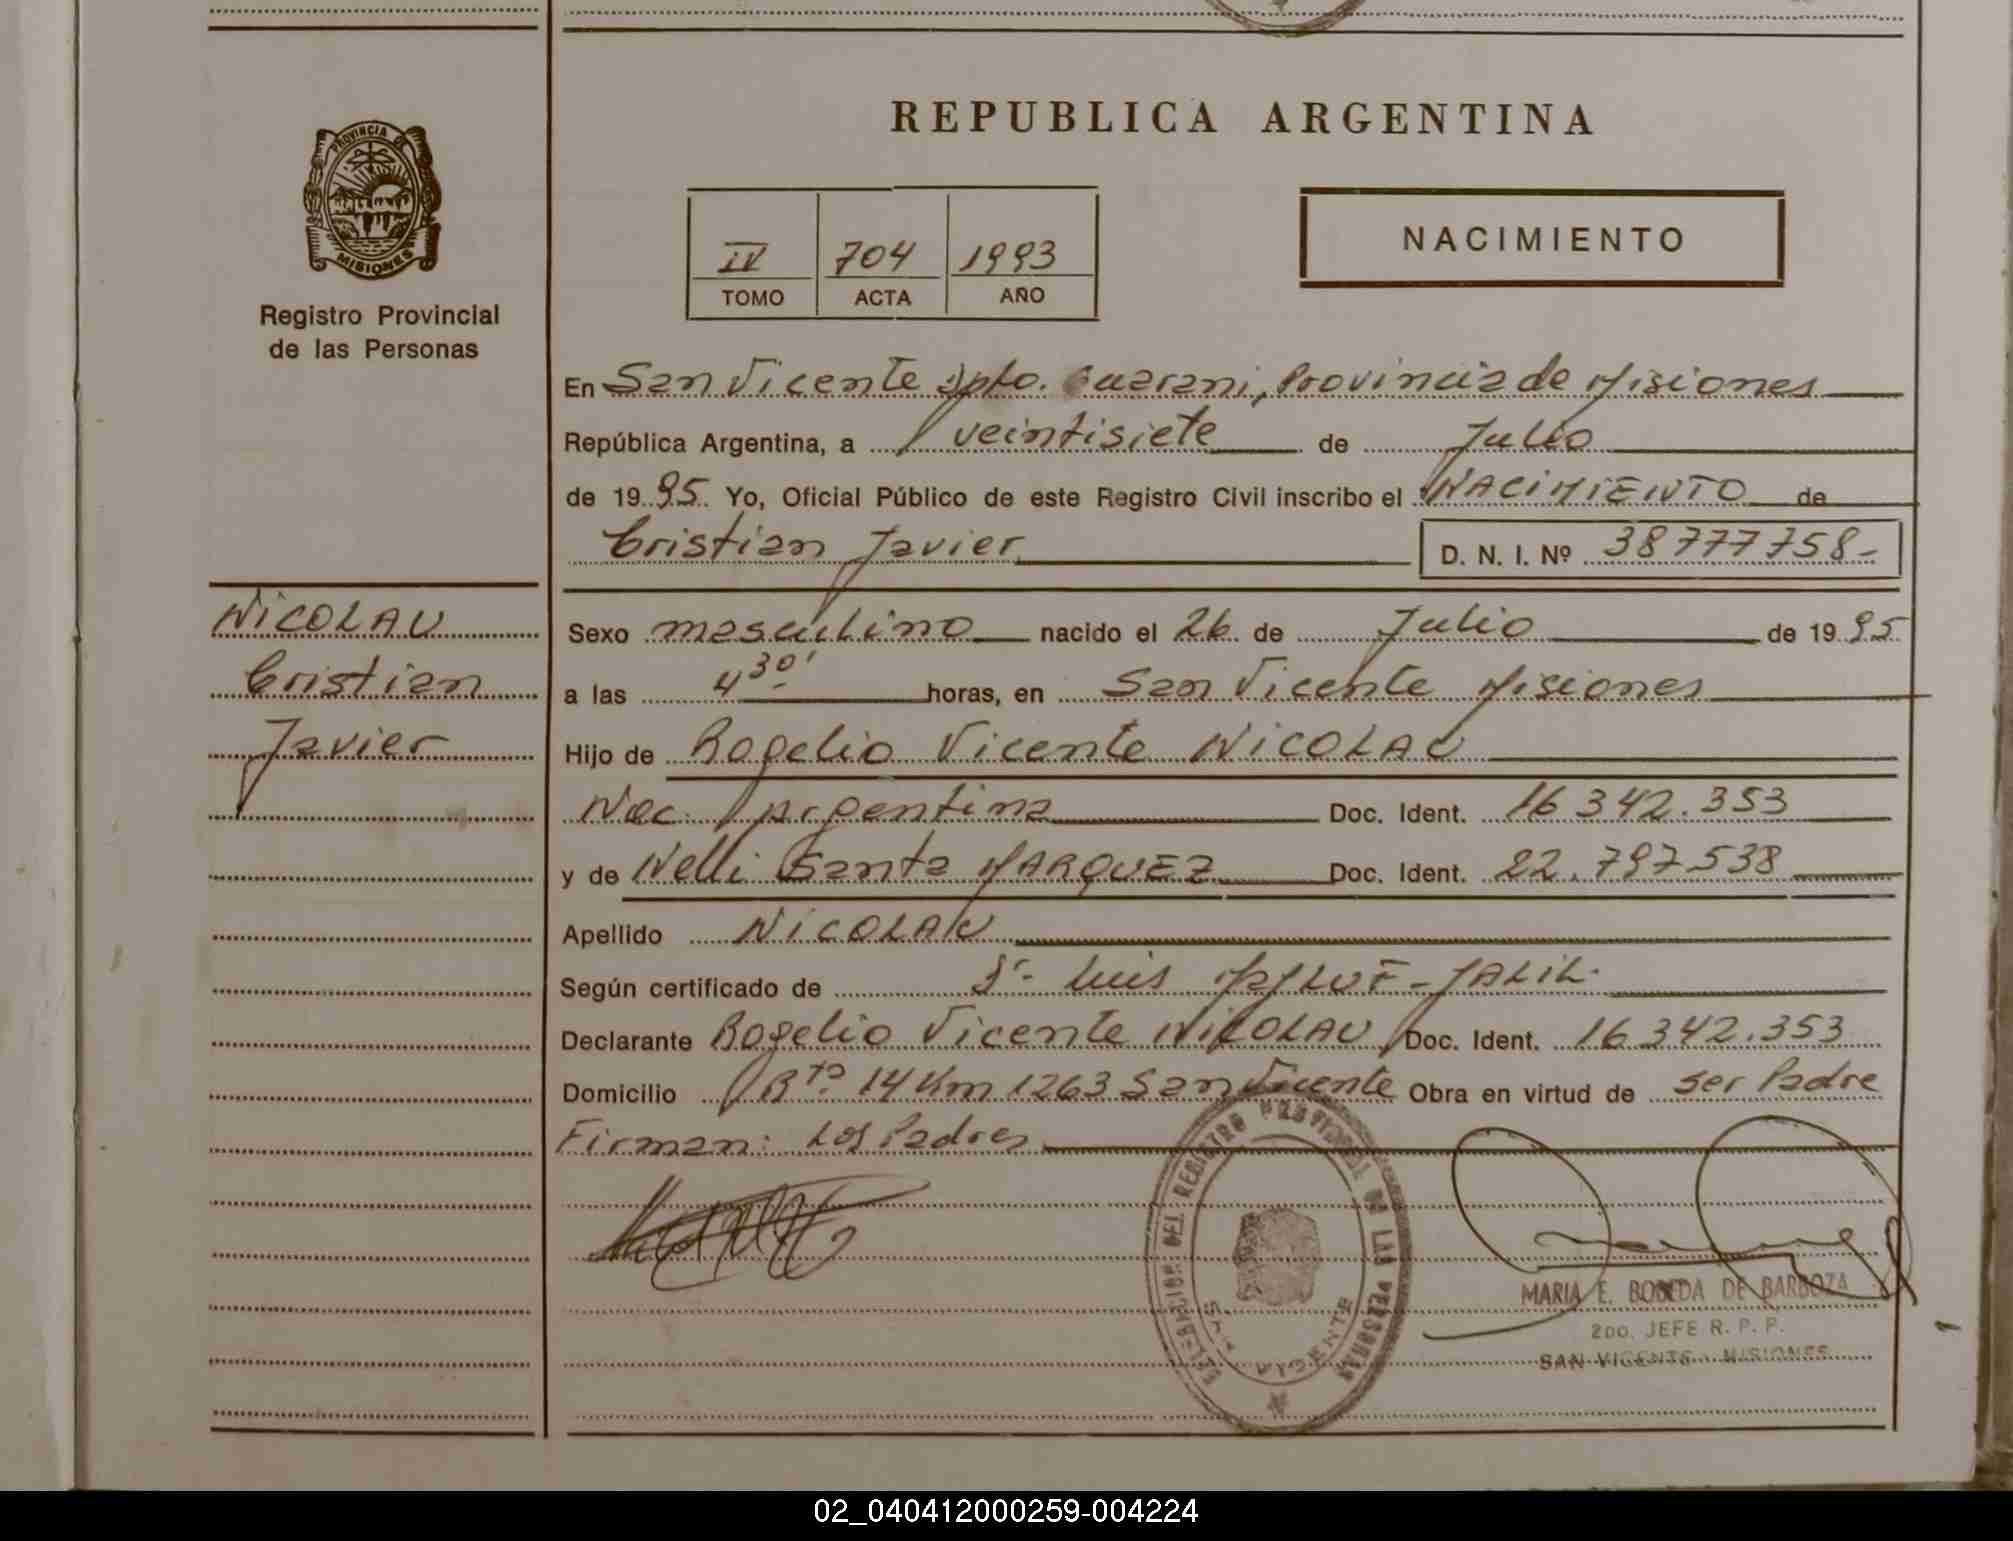 PROVINCIA DE
MISIONES
Registro Provincial
de las Personas
REPUBLICA ARGENTINA
IV 704 1993
TOMO ACTA AÑO
NACIMIENTO
En San Vicente Dpto. Guarani, Provincia de Misiones
República Argentina, a veintisiete de Julio
de 1995. Yo, Oficial Público de este Registro Civil inscribo el NACIMIENTO de
Cristian Javier D. N. I. Nº 38777758-
NICOLAU
Cristian
Javier
Sexo masculino nacido el 26 de Julio de 1995
a las 4 30' horas, en San Vicente Misiones
Hijo de Rogelio Vicente NICOLAU
Nac. Argentina Doc. Ident. 16 342.353
y de Nelli Santa MARQUEZ Doc. Ident. 22.797538
Apellido NICOLAU
Según certificado de Dr. Luis JALIL
Declarante Rogelio Vicente NICOLAU Doc. Ident. 16342.353
Domicilio Rta 14 Km 1263 San Vicente Obra en virtud de ser Padre
Firman: Los Padres
DELEGACION DEL REGISTRO PROVINCIAL DE LAS PERSONAS
SAN VICENTE
MARIA E. BOBEDA DE BARBOZA
2DO. JEFE R. P. P.
SAN VICENTE - MISIONES
02_040412000259-004224